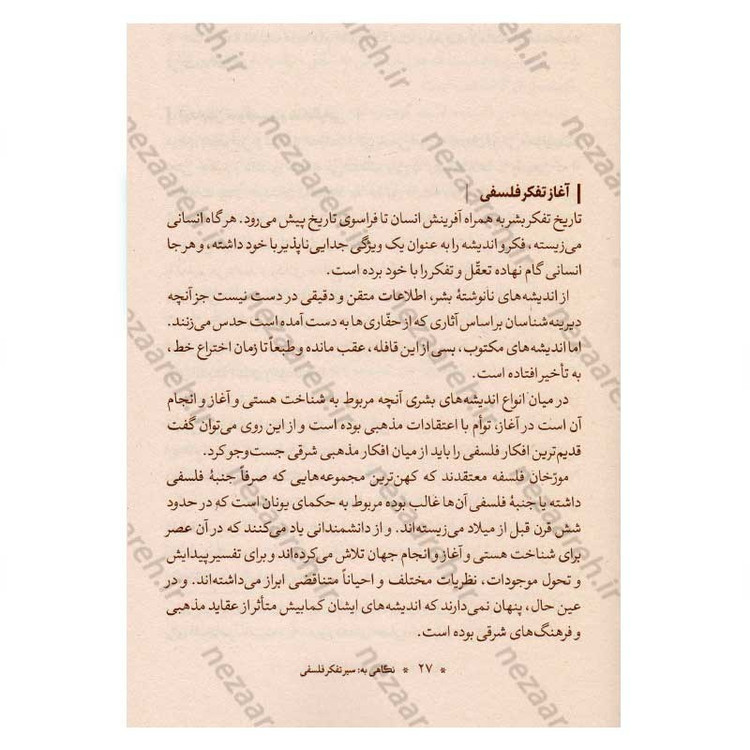 | آغاز تفکر فلسفی |
تاریخ تفکر بشر به همراه آفرینش انسان تا فراسوی تاریخ پیش می‌رود. هرگاه انسانی
می‌زیسته، فکر و اندیشه را به عنوان یک ویژگی جدایی‌ناپذیر با خود داشته، و هر جا
انسانی گام نهاده تعقّل و تفکر را با خود برده است.
از اندیشه‌های نانوشتهٔ بشر، اطلاعات متقن و دقیقی در دست نیست جز آنچه
دیرینه‌شناسان براساس آثاری که از حفّاری‌ها به دست آمده است حدس می‌زنند.
اما اندیشه‌های مکتوب، بسی از این قافله، عقب مانده و طبعاً تا زمان اختراع خط،
به تأخیر افتاده است.
در میان انواع اندیشه‌های بشری آنچه مربوط به شناخت هستی و آغاز و انجام
آن است در آغاز، توأم با اعتقادات مذهبی بوده است و از این روی می‌توان گفت
قدیم‌ترین افکار فلسفی را باید از میان افکار مذهبی شرقی جست‌وجو کرد.
مورّخان فلسفه معتقدند که کهن‌ترین مجموعه‌هایی که صرفاً جنبهٔ فلسفی
داشته یا جنبهٔ فلسفی آن‌ها غالب بوده مربوط به حکمای یونان است که در حدود
شش قرن قبل از میلاد می‌زیسته‌اند. و از دانشمندانی یاد می‌کنند که در آن عصر
برای شناخت هستی و آغاز و انجام جهان تلاش می‌کرده‌اند و برای تفسیر پیدایش
و تحول موجودات، نظریات مختلف و احیاناً متناقضی ابراز می‌داشته‌اند. و در
عین حال، پنهان نمی‌دارند که اندیشه‌های ایشان کمابیش متأثر از عقاید مذهبی
و فرهنگ‌های شرقی بوده است.
* ۲۷ * نگاهی به: سیر تفکر فلسفی
nezaareh.ir
nezaareh.ir
nezaareh.ir
nezaareh.ir
nezaareh.ir
nezaareh.ir
nezaareh.ir
nezaareh.ir
nezaareh.ir
nezaareh.ir